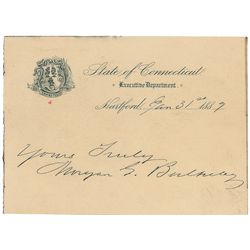 State of Connecticut
Executive Department.
Hartford, Jan 31st 1889
Yours Truly
Morgan G. Bulkeley